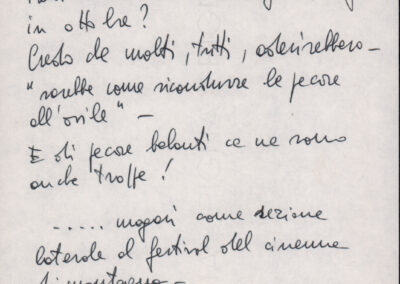 in ottobre?
Credo che molti, tutti, aderirebbero –
"sarebbe come ricondurre le pecore
all'ovile" –
E di pecore belanti ce ne sono
anche troppe!
..... magari come sezione
laterale al festival del cinema
di montagna –